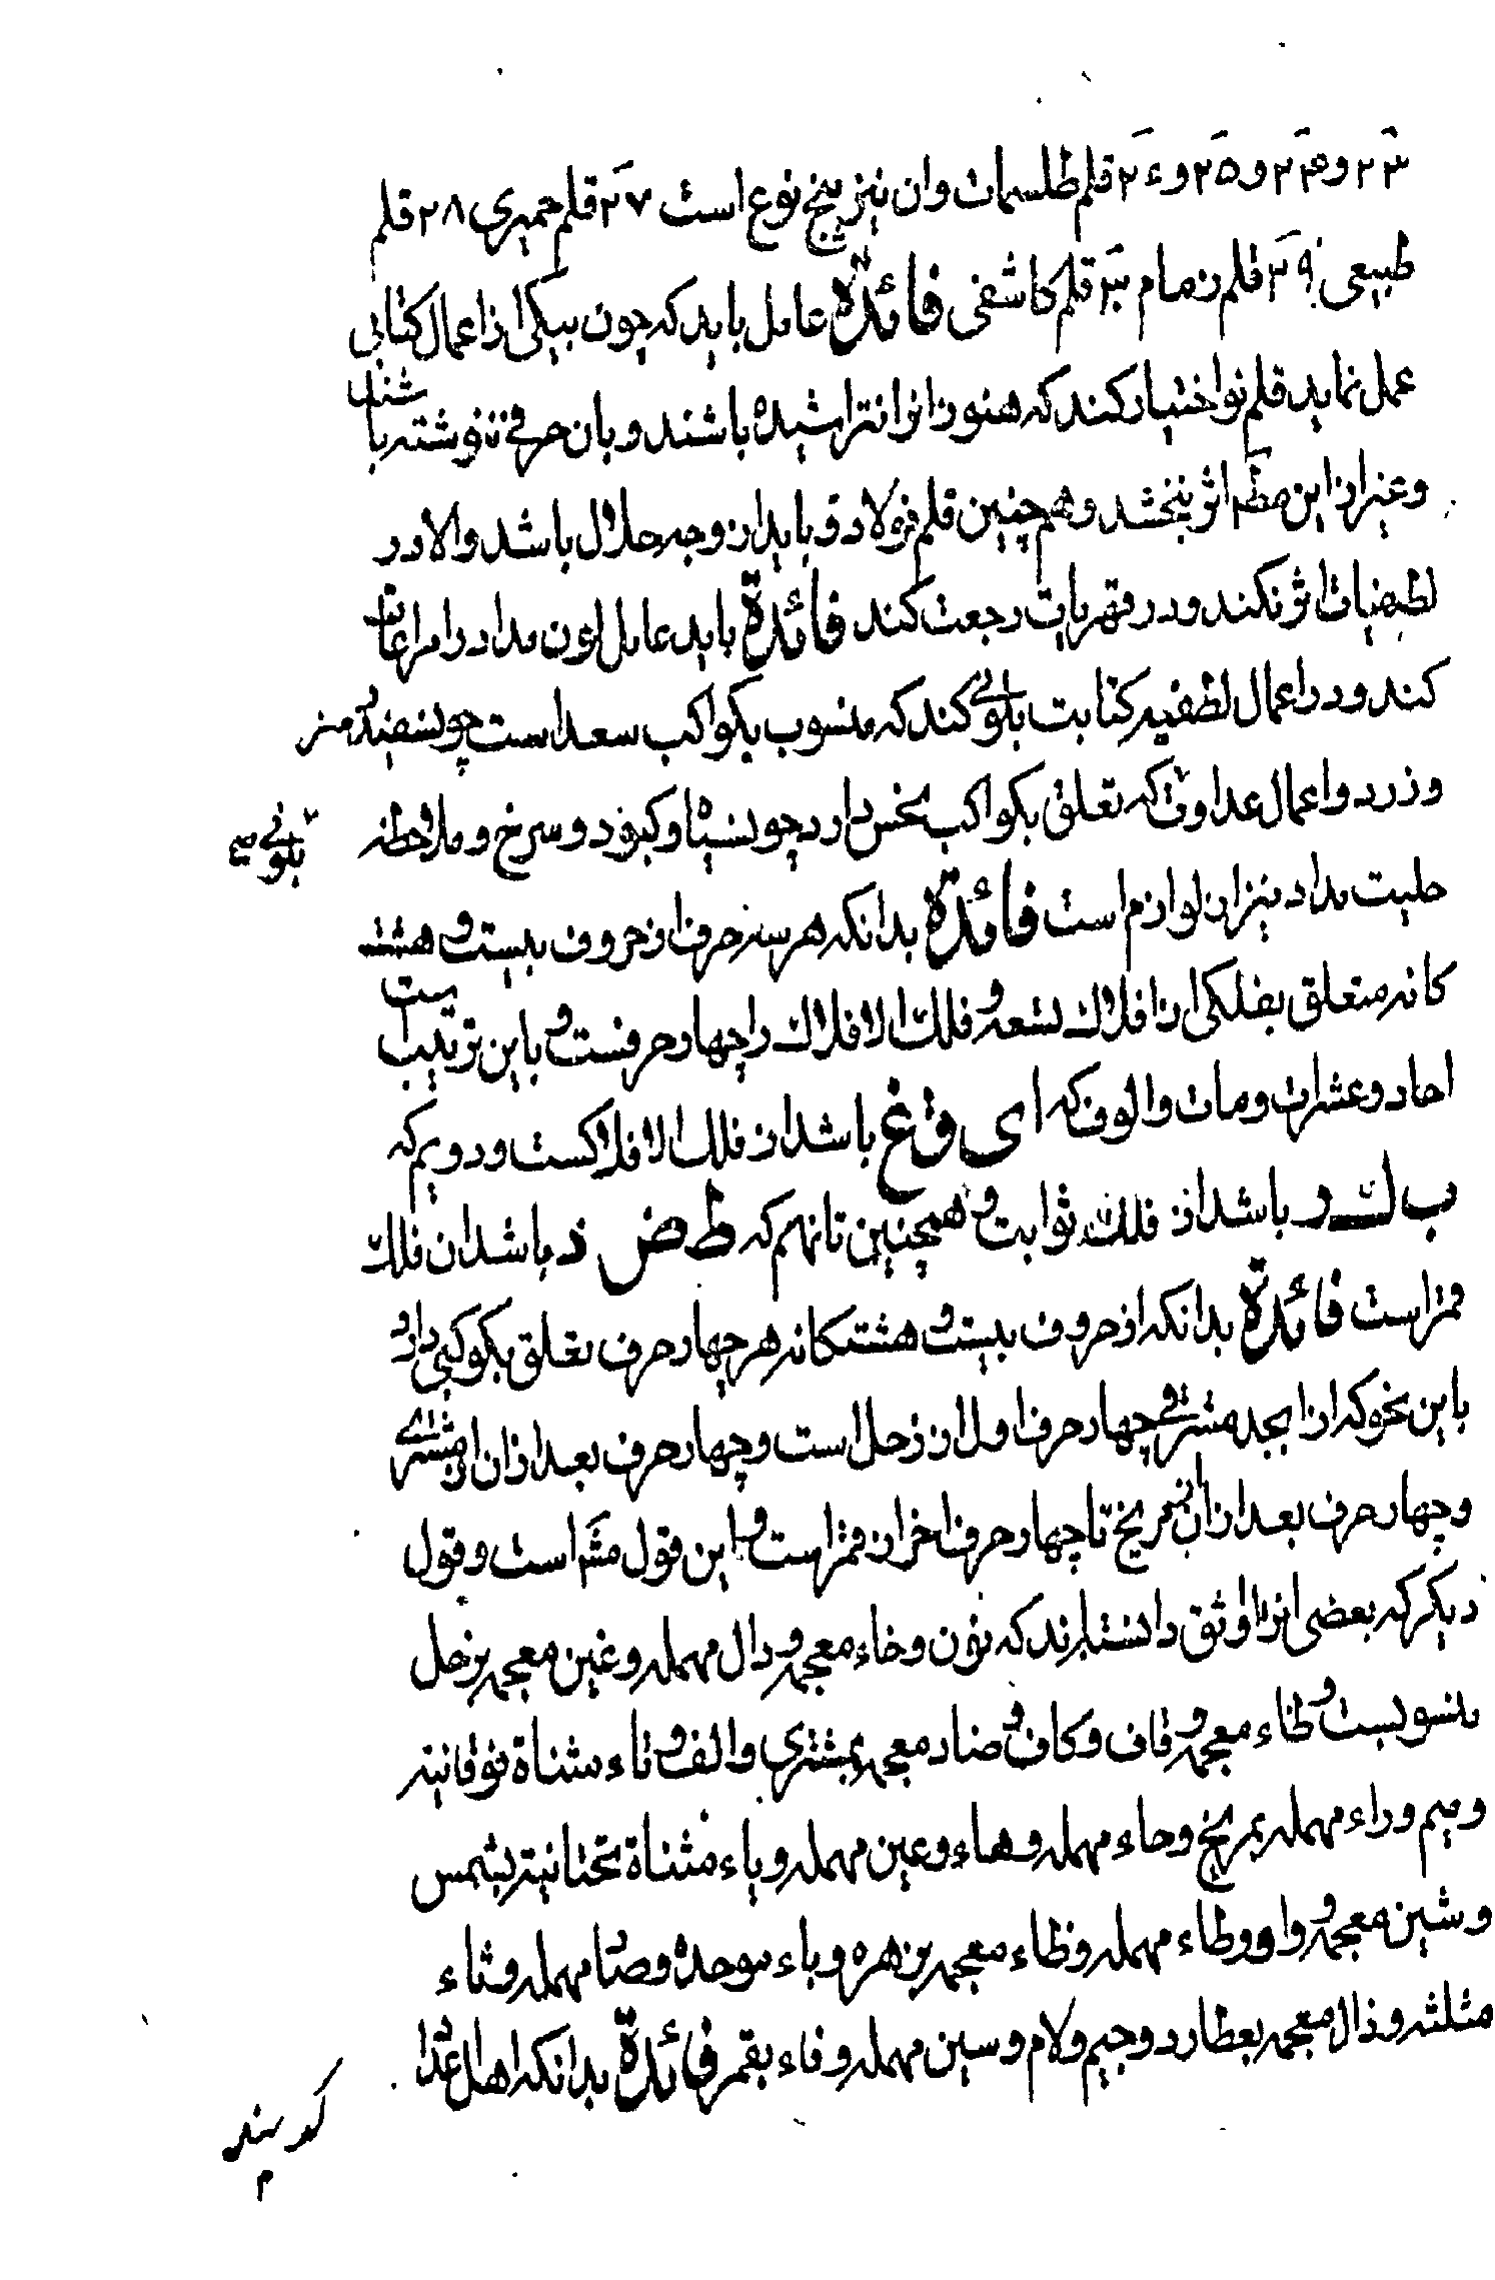 ۲۳ و ۲۴ و ۲۵ و ۲۶ قلم طلسمات و ان نیز پنج نوع است ۲۷ قلم حمیری ۲۸ قلم
طبیعی ۲۹ قلم زمام ۳۰ قلم کاشفی فائدة عامل باید که چون بیکی از اعمال کتابی
عمل نماید قلم نو اختیار کند که هنوز انرا نتراشیده باشند و بان حرفی ننوشته باشند
و غیر از این مط اثر نبخشد و هم چنین قلم فولاد و باید از وجه حلال باشد والا در
لطفیات اثر نکند و در قهریات رجعت کند فائدة باید عامل لون مداد را مراعات
کند و در اعمال لطفیه کتابت بلونی کند که منسوب بکواکب سعد است چون سفید و سبز
و زرد و اعمال عداوت که تعلق بکواکب نحس دارد چون سیاه و کبود و سرخ و ملاحظه
بلونی
حلیت مداد نیز از لوازم است فائدة بدانکه هر سه حرف از حروف بیست و هشت
کانه متعلق بفلکی از افلاک تسعه و فلک الافلاک را چهار حرفست و باین ترتیب است
احاد و عشرات و مات و الوف که ا ی ق غ باشد از فلک الافلاکست و دویم که
ب ک ر باشد از فلک ثوابت و همچنین تا نهم که ط ض ذ باشد از فلک
قمر است فائدة بدانکه از حروف بیست و هشتکانه هر چهار حرف تعلق بکوکبی دارد
باین نحو که از ابجد مشرقی چهار حرف اول از زحل است و چهار حرف بعد از ان از مشتری
و چهار حرف بعد از ان بمریخ تا چهار حرف اخر از قمر است و این قول مش است و قول
دیکر که بعضی انرا اوثق دانسته‌اند که نون و خاء معجمه و دال مهمله و غین معجمه بزحل
منسوبست و ظاء معجمه و قاف و کاف و ضاد معجمه بمشتری و الف و تاء مثناة فوقانیه
و میم و راء مهمله بمریخ و حاء مهمله و هاء و عین مهمله و یاء مثناة تحتانیه بشمس
و شین معجمه و واو و طاء مهمله و ظاء معجمه بزهره و باء موحده و صاد مهمله و ثاء
مثلثه و ذال معجمه بعطارد و جیم و لام و سین مهمله و فاء بقمر فائدة بدانکه اهل عدد